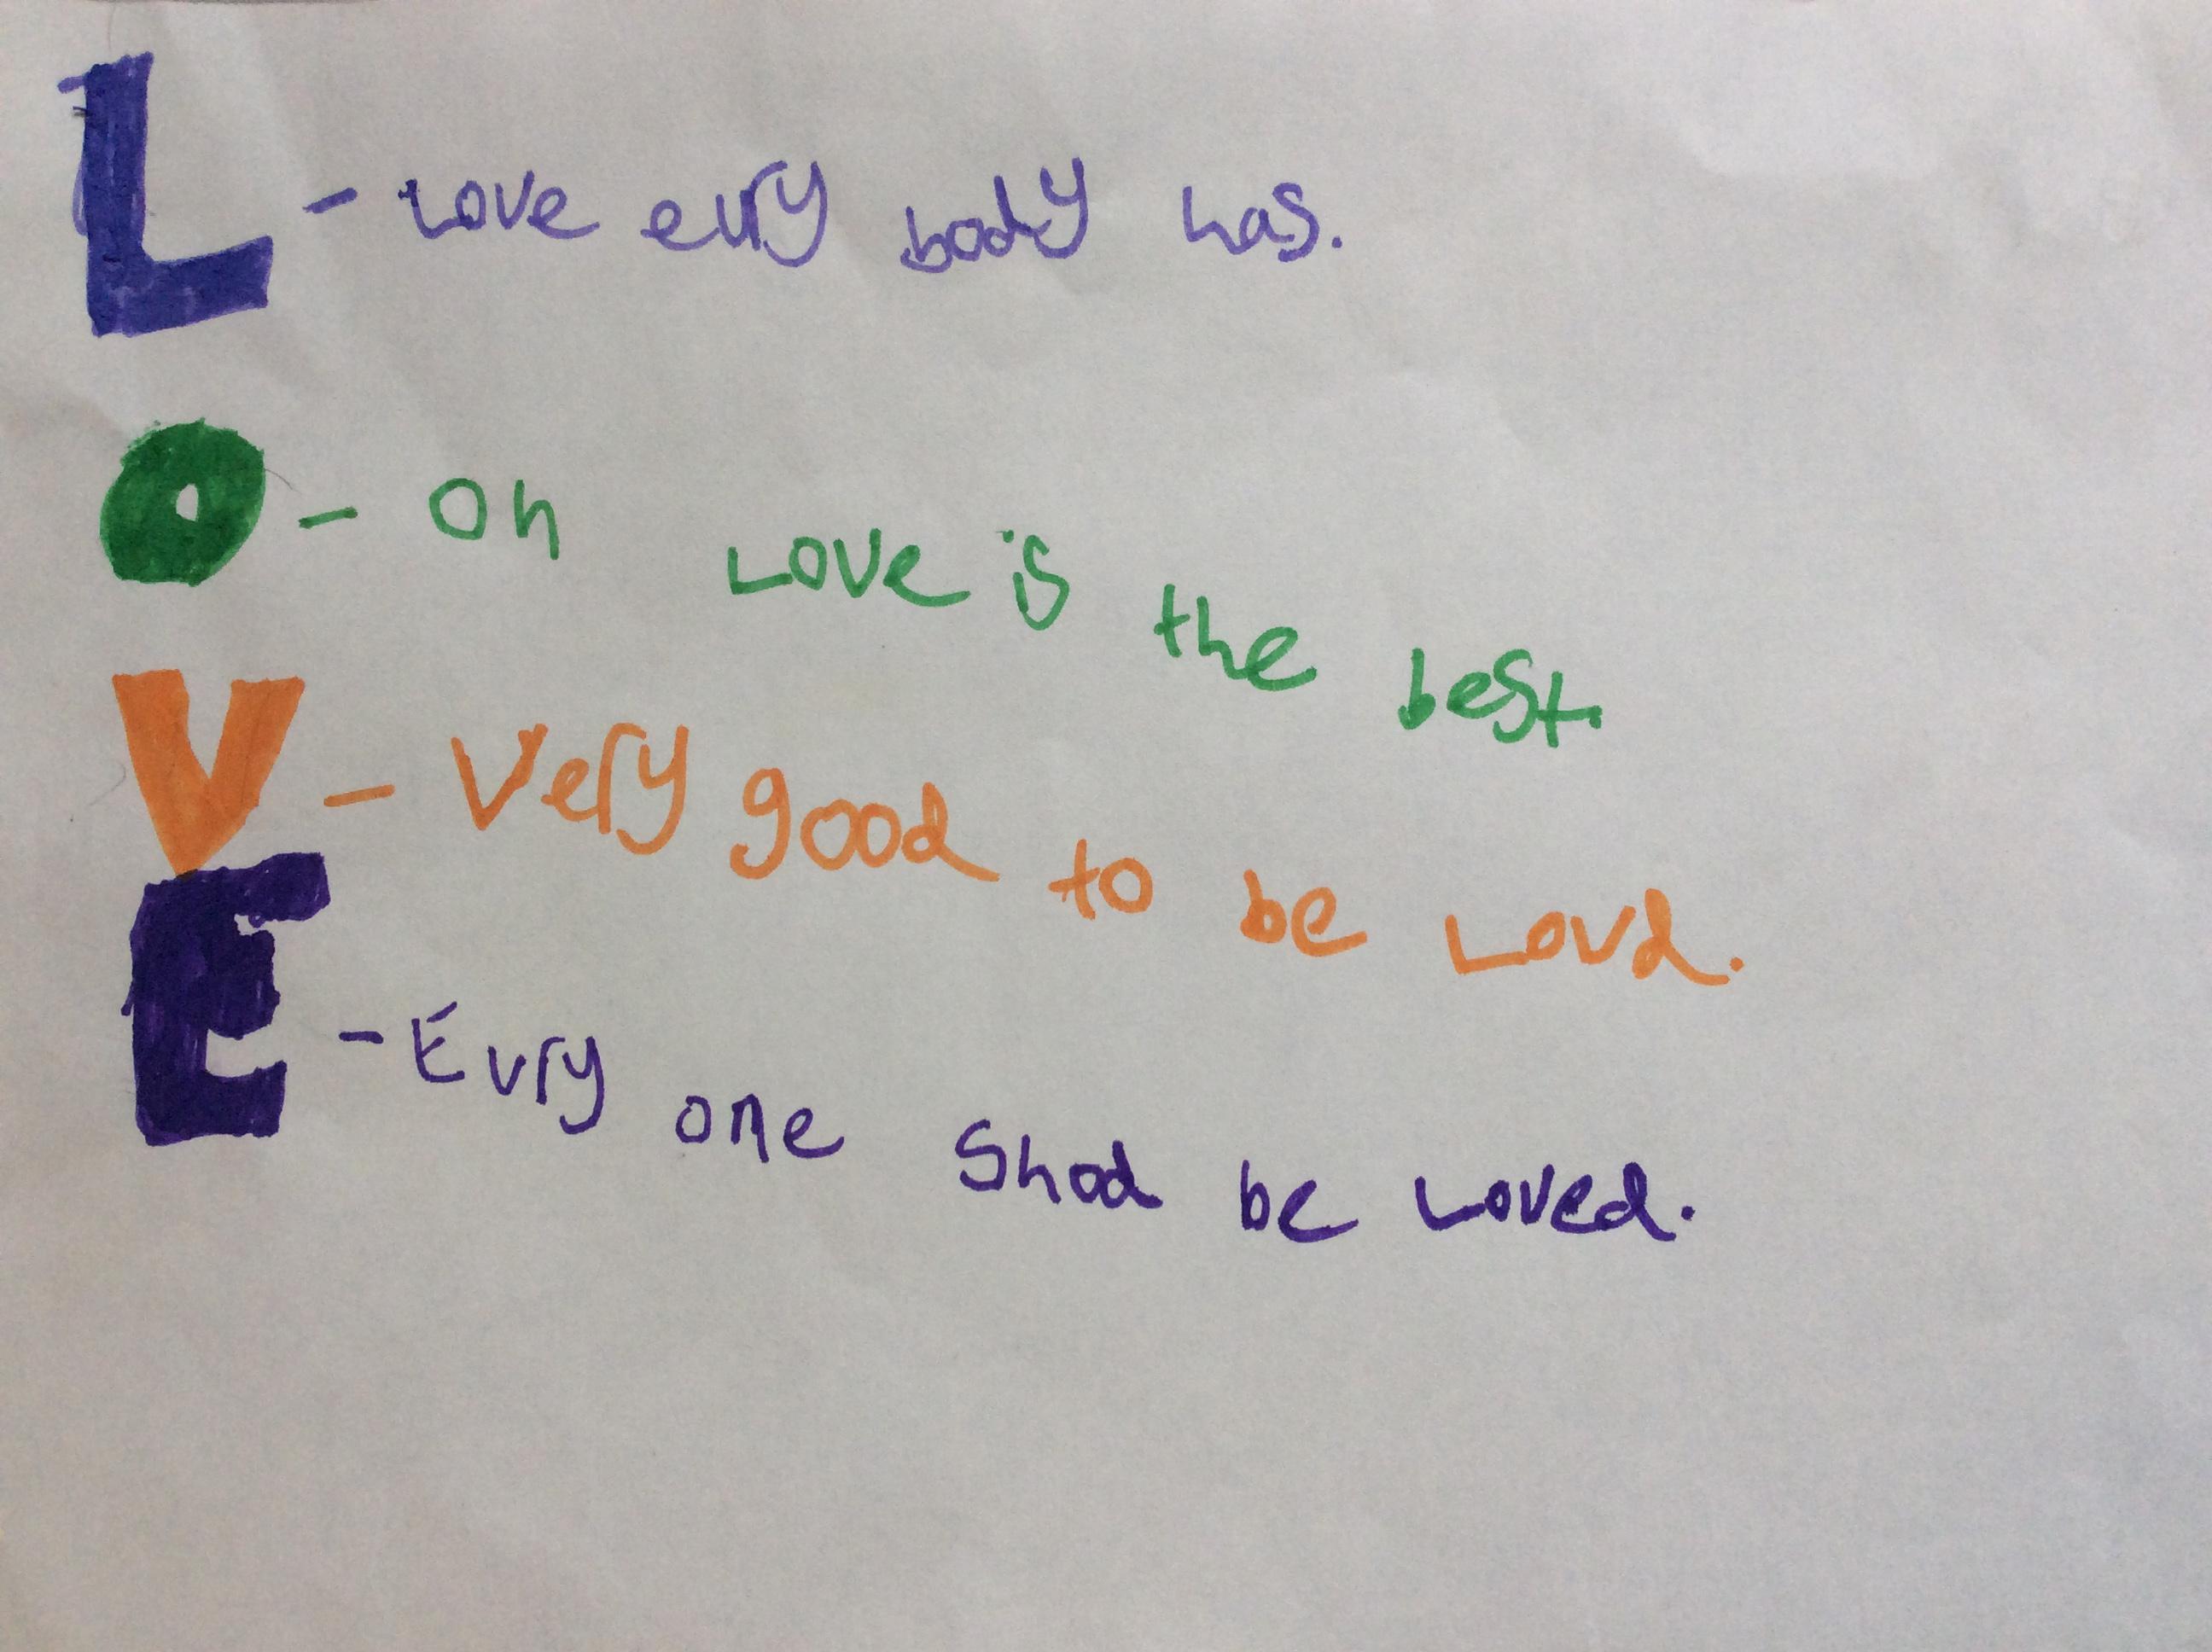 L - Love evry body has.
O - Oh Love is the best.
V - Very good to be Lovd.
E - Evry one Shod be Loved.